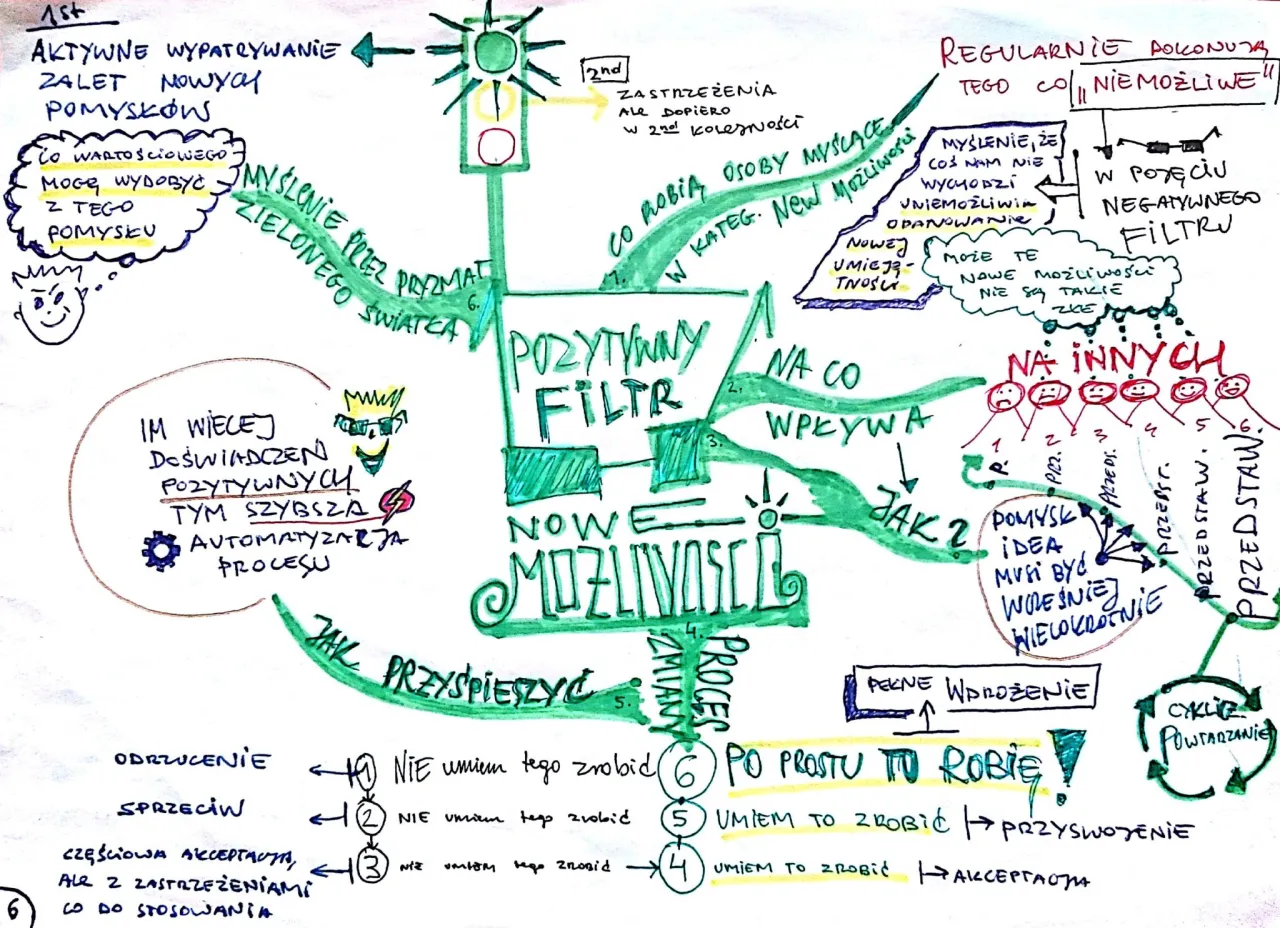 1st
AKTYWNE WYPATRYWANIE
ZALET NOWYCH
POMYSKÓW
CO WARTOŚCIOWEGO
MOGĘ WYDOBYĆ
Z TEGO
POMYSKU
2nd
ZASTRZEŻENIA
ALE DOPIERO
W 2nd KOLEJNOŚCI
MYŚLENIE PRZEZ PRYZMAT
ZIELONEGO ŚWIATŁA
6.
CO ROBIĄ OSOBY MYŚLĄCE
W KATEG. NEW MOŻLIWOŚCI
1.
REGULARNIE POKONUJĄ
TEGO CO „NIEMOŻLIWE"
W POJĘCIU
NEGATYWNEGO
FILTRU
MYŚLENIE, ŻE
COŚ NAM NIE
WYCHODZI
UNIEMOŻLIWIA
OPANOWANIE
NOWEJ
UMIEJĘ-
TNOŚCI
MOŻE TE
NOWE MOŻLIWOŚCI
NIE SĄ TAKIE
ZŁE
POZYTYWNY
FILTR
NOWE
MOŻLIWOŚCI
2.
NA CO
WPŁYWA
NA INNYCH
1 2 3 4 5 6
P.
PRZ.
PRZEDS.
PRZEDST.
PRZEDSTAW.
PRZEDSTAW.
3.
JAK?
POMYSŁ
IDEA
MUSI BYĆ
WCZEŚNIEJ
WIELOKROTNIE
CYKLICZ.
POWTARZANIE
IM WIĘCEJ
DOŚWIADCZEŃ
POZYTYWNYCH
TYM SZYBSZA
AUTOMATYZACJA
PROCESU
JAK PRZYŚPIESZYĆ
5.
4.
PROCES
ZMIANY
PEŁNE WDROŻENIE
ODRZUCENIE
1 NIE umiem tego zrobić
6 PO PROSTU TO ROBIĘ!
SPRZECIW
2 NIE umiem tego zrobić
5 UMIEM TO ZROBIĆ
PRZYSWOJENIE
CZĘŚCIOWA AKCEPTACJA,
ALE Z ZASTRZEŻENIAMI
CO DO STOSOWANIA
3 NIE umiem tego zrobić
4 UMIEM TO ZROBIĆ
AKCEPTACJA
6